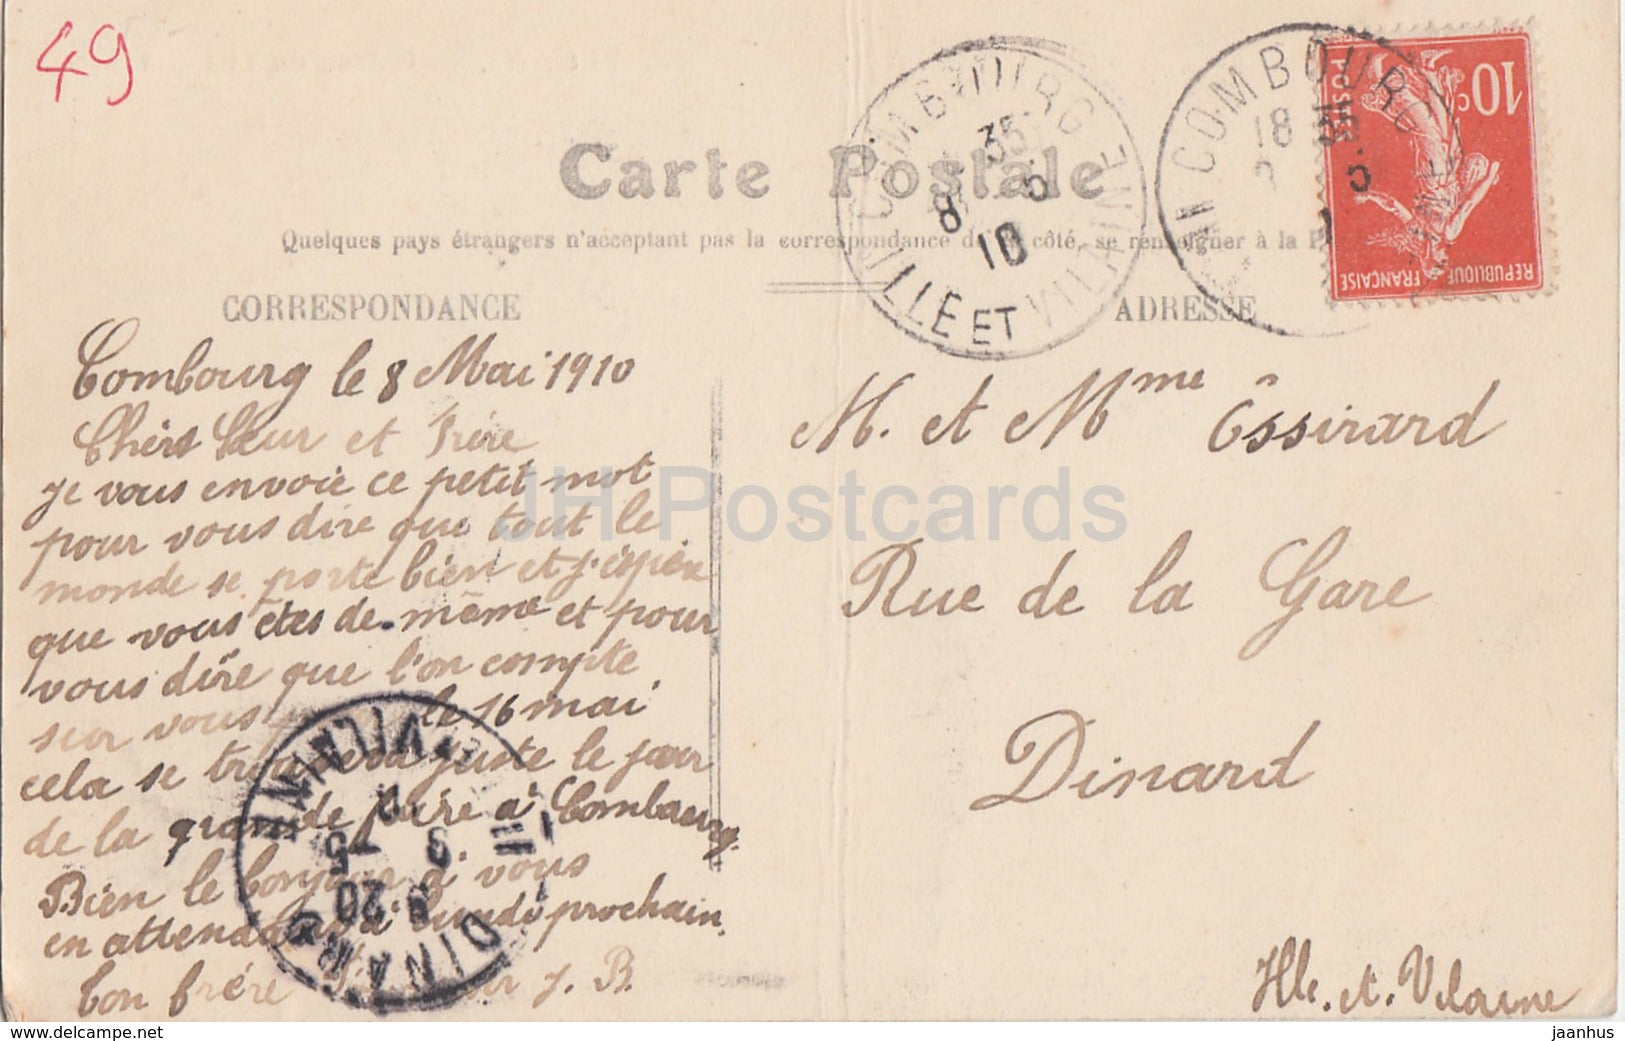 49
Carte Postale
Quelques pays étrangers n'acceptant pas la correspondance de ce côté, se renseigner à la
CORRESPONDANCE
Combourg le 8 Mai 1910
Chèrs Sœur et Frère
je vous envoie ce petit mot
pour vous dire que tout le
monde se porte bien et j'éspère
que vous êtes de même et pour
vous dire que l'on compte
sur vous le 16 mai
cela se trouvera juste le jour
de la grande foire à Combourg
Bien le bonjour à vous
en attendant à lundi prochain
ton frère J. B.
ADRESSE
M. et Mme Ossirard
Rue de la Gare
Dinard
Ille.et.Vilaine
COMBOURG
35
8 5
10
ILLE ET VILAINE
COMBOURG
18 35
5
10c
POSTES
REPUBLIQUE FRANÇAISE
DINARD
20
9 5
VILAINE
JH Postcards
delcampe.net
jaanhus